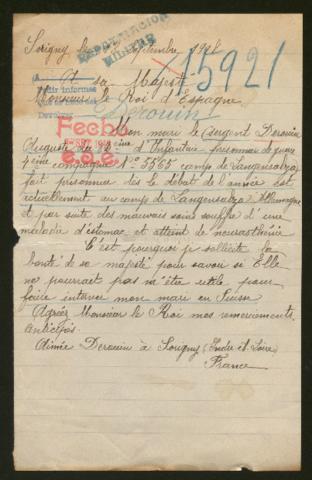 Sorigny le Septembre 191
EXPATRIACION
MILITAR
15921
A sa Majesté
Pedir informes
Monsieur le Roi d'Espagne
Derouin
Fecho
Mon mari le Sergent Derouin
August du d'Infanterie prisonnier de guerre
4eme compagnie No 5565 camp de Langensalza
fait prisonnier dès le début de l'année est
actuellement au camp de Langensalza Allemagne
et par suite des mauvais soins souffre d'une
maladie d'estomac et atteint de neurasthénie
C'est pourquoi je sollicite la
bonté de sa majesté pour savoir si Elle
ne pourrait pas m'être utile pour
faire interner mon mari en Suisse
Agréez Monsieur le Roi mes remerciements
anticipés
Aimée Derouin à Sorigny (Indre et Loire)
France